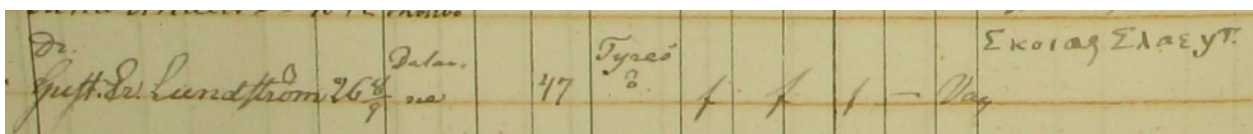 Dr.
Gust. Er. Lundström 26 8/9 Dalarne 47 Tyresö f f f — Vag
Σκοιας Σλαευτ.